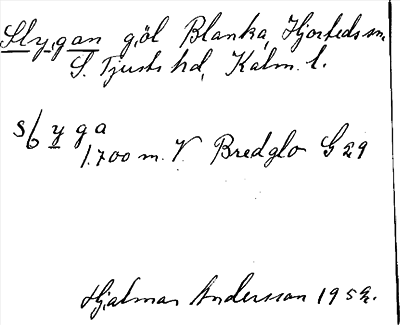 Slygan göl Blanka, Hjorteds sn.
S. Tjusts hd, Kalm. l.
slyga
1.700 m. V Bredglo G 29
Hjalmar Andersson 1952.